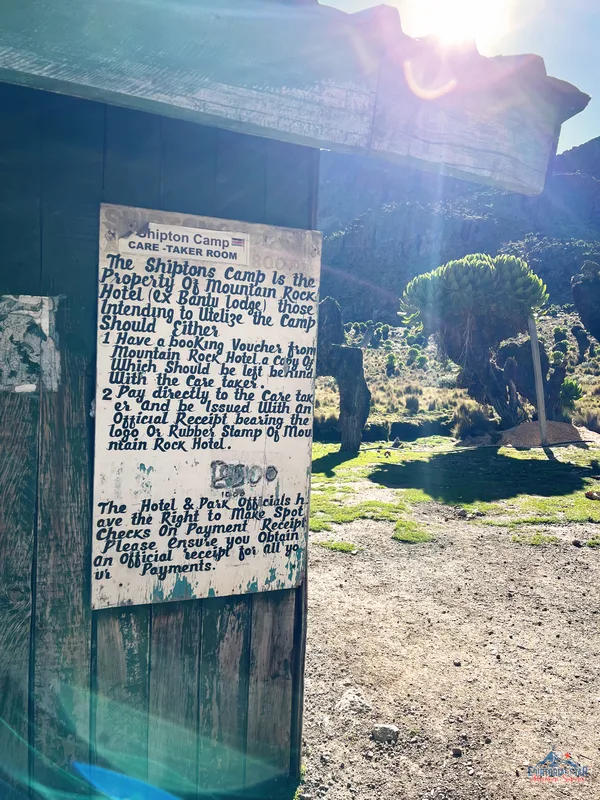 Shipton Camp
CARE -TAKER ROOM
The Shiptons Camp Is the
Property Of Mountain Rock
Hotel (Ex Bantu lodge) those
Intending to Utelize the Camp
Should Either
1 Have a booKing Voucher from
Mountain Rock Hotel.a Copy Of
Which Should be left behind
With the Care taker.
2 Pay directly to the Care tak
er and be Issued With an
Official Receipt bearing the
logo Or Rubber Stamp Of Mou
ntain Rock Hotel.
The Hotel & Park Officials h
ave the Right to Make Spot
Checks On Payment Receipt
Please ensure you Obtain
an Official receipt for all yo
ur Payments.